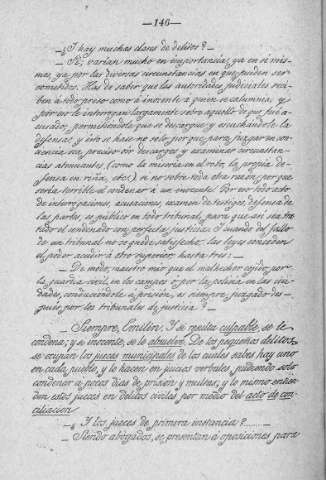 —146—
—¿Y hay muchas clases de delitos?—
—Sí; varían mucho en importancia, ya en sí mis-
mas, ya por las diversas circunstancias en que pueden ser
cometidos. Has de saber que las autoridades judiciales reci-
ben á todo preso como á inocente á quien se calumnia, y
por eso le interrogan largamente sobre aquello de que fué a-
cusado, permitiéndole que se descargue y escuchándole la
defensa; y ésto se hace no solo por que, para juzgar en con-
ciencia sea preciso oír descargos y conocer circunstan-
cias atenuantes, (como la miseria en el robo, la propia de-
fensa en riña, etc.) si no sobre todo otra razón, por que
sería terrible el condenar á un inocente. Por eso todo acto
de interrogaciones, acusaciones, examen de testigos, defensa de
las partes, es público en todo tribunal, para que así sea tra-
tado el condenado con perfecta justicia. Y cuando del fallo
de un tribunal no se quede satisfecho, las leyes conceden
el poder acudir á otro superior, hasta tres:—
—De modo, maestro mío que el malhechor cogido por
la guardia civil, en los campos ó por la policía en las ciu-
dades, conduciéndole á prisión, es siempre juzgado des-
pués por los tribunales de justicia?—
—Siempre, Emilio. Y si resulta culpable, se le
condena; y si inocente, se le absuelve. De los pequeños delitos,
se ocupan los jueces municipales de los cuales sabes hay uno
en cada pueblo, y lo hacen en juicios verbales, pudiendo solo
condenar á pocos días de prisión y multas; y lo mismo entien-
den estos jueces en delitos civiles por medio del acto de con-
ciliación
—¿Y los jueces de primera instancia?......—
—Siendo abogados, se presentan á oposiciones para